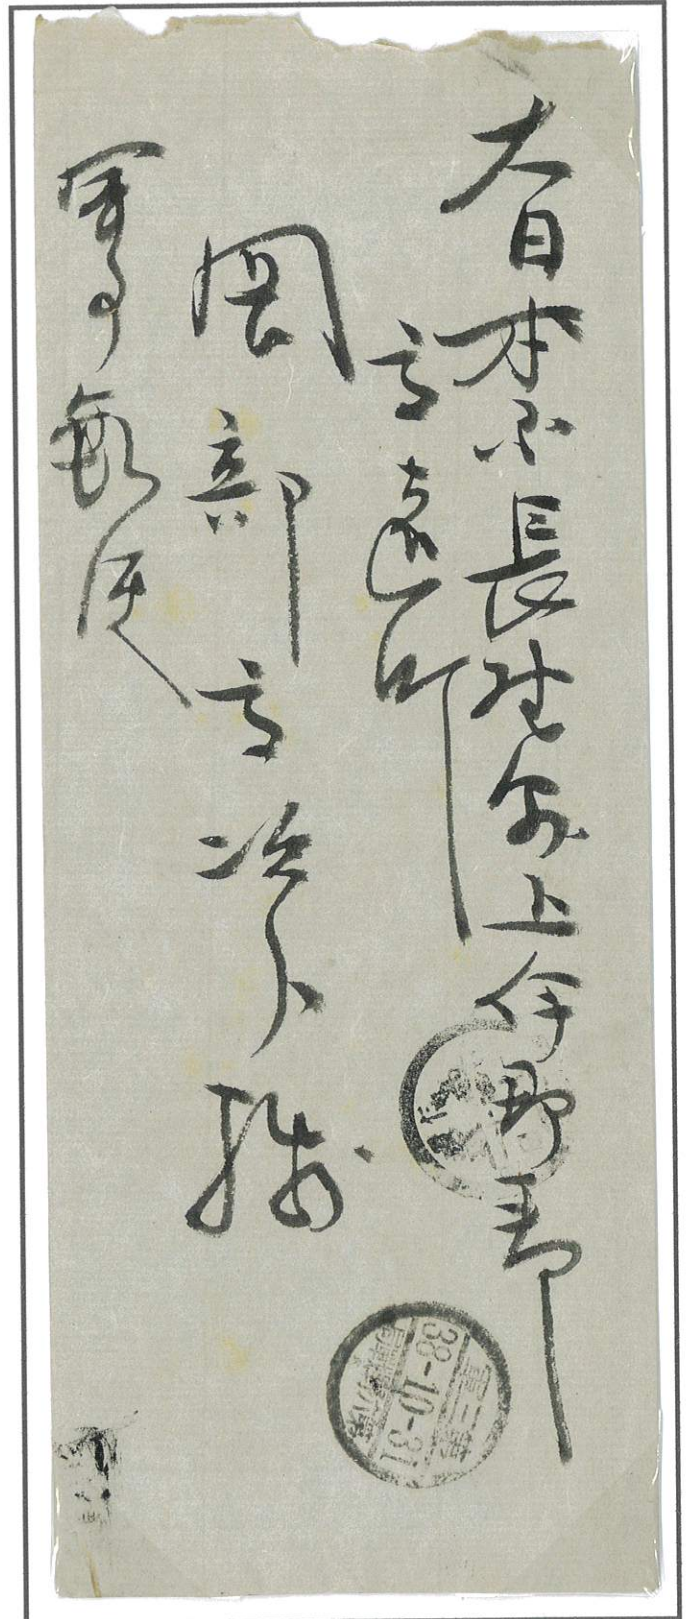 大日本長野縣上伊那郡
高遠町
岡部高治郎様
軍事郵便
第三軍
38-10-31